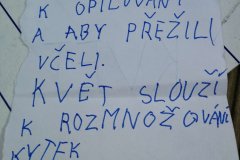 K OPILOVÁNÍ
A ABY PŘEŽILI
VČELJ.
KVĚT SLOUŽÍ
K ROZMNOŽOVÁNÍ
KYTEK